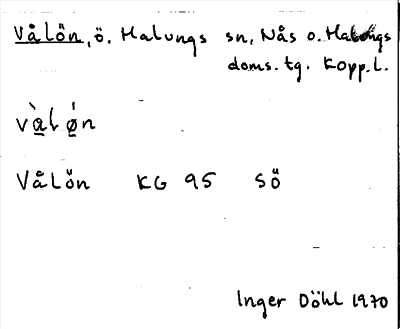 Vålön, ö. Malungs sn, Nås o. Malungs
doms. tg. Kopp. l.
vàlǿn
Vålön KG 95 SÖ
Inger Döhl 1970